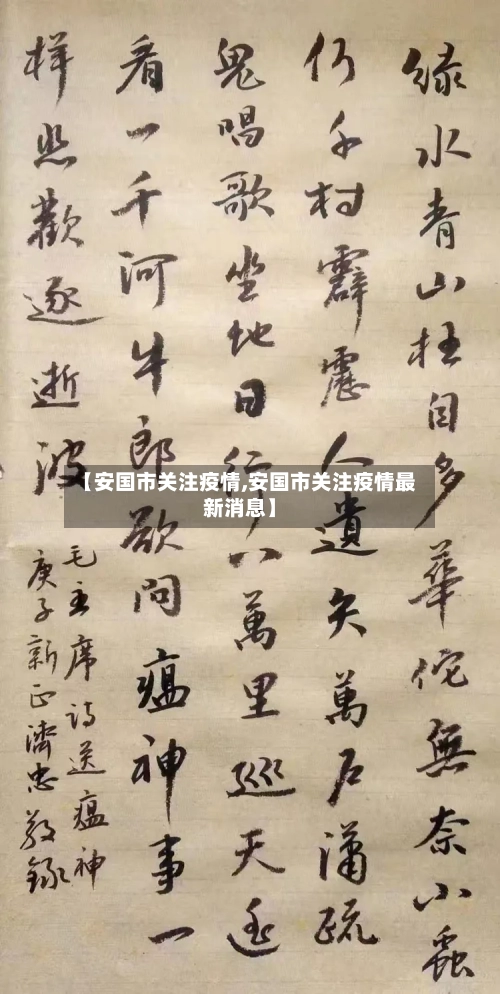 緑水青山枉自多華佗無奈小蟲
何千村霹靂人遺矢萬户瀟疏
鬼唱歌坐地日行八萬里巡天遥
看一千河牛郎欲問瘟神事一
樣悲歡逐逝波
毛主席詩送瘟神
庚子新正濟忠敬録
【安国市关注疫情,安国市关注疫情最
新消息】